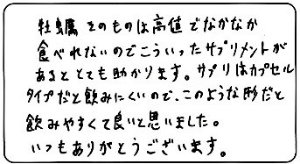 牡蠣そのものは高値でなかなか
食べれないのでこういったサプリメントが
あるととても助かります。サプリはカプセル
タイプだと飲みにくいので、このような形だと
飲みやすくて良いと思いました。
いつもありがとうございます。